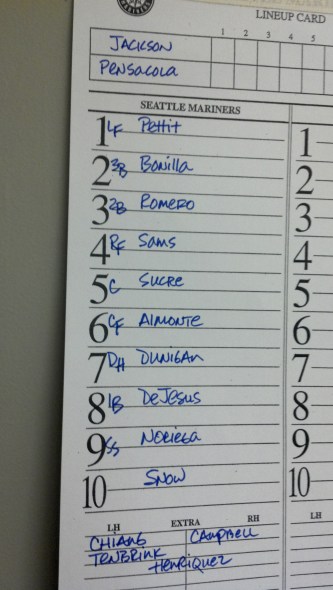 LINEUP CARD
1 2 3 4 5
JACKSON
PENSACOLA
SEATTLE MARINERS
1 LF Pettit 1
2 3B Bonilla 2
3 2B Romero 3
4 RF Sams 4
5 C Sucre 5
6 CF Almonte 6
7 DH Dunigan 7
8 1B DeJesus 8
9 SS Noriega 9
10 Snow 10
LH EXTRA RH LH
CHIANG Campbell
TENBRINK
Henriquez